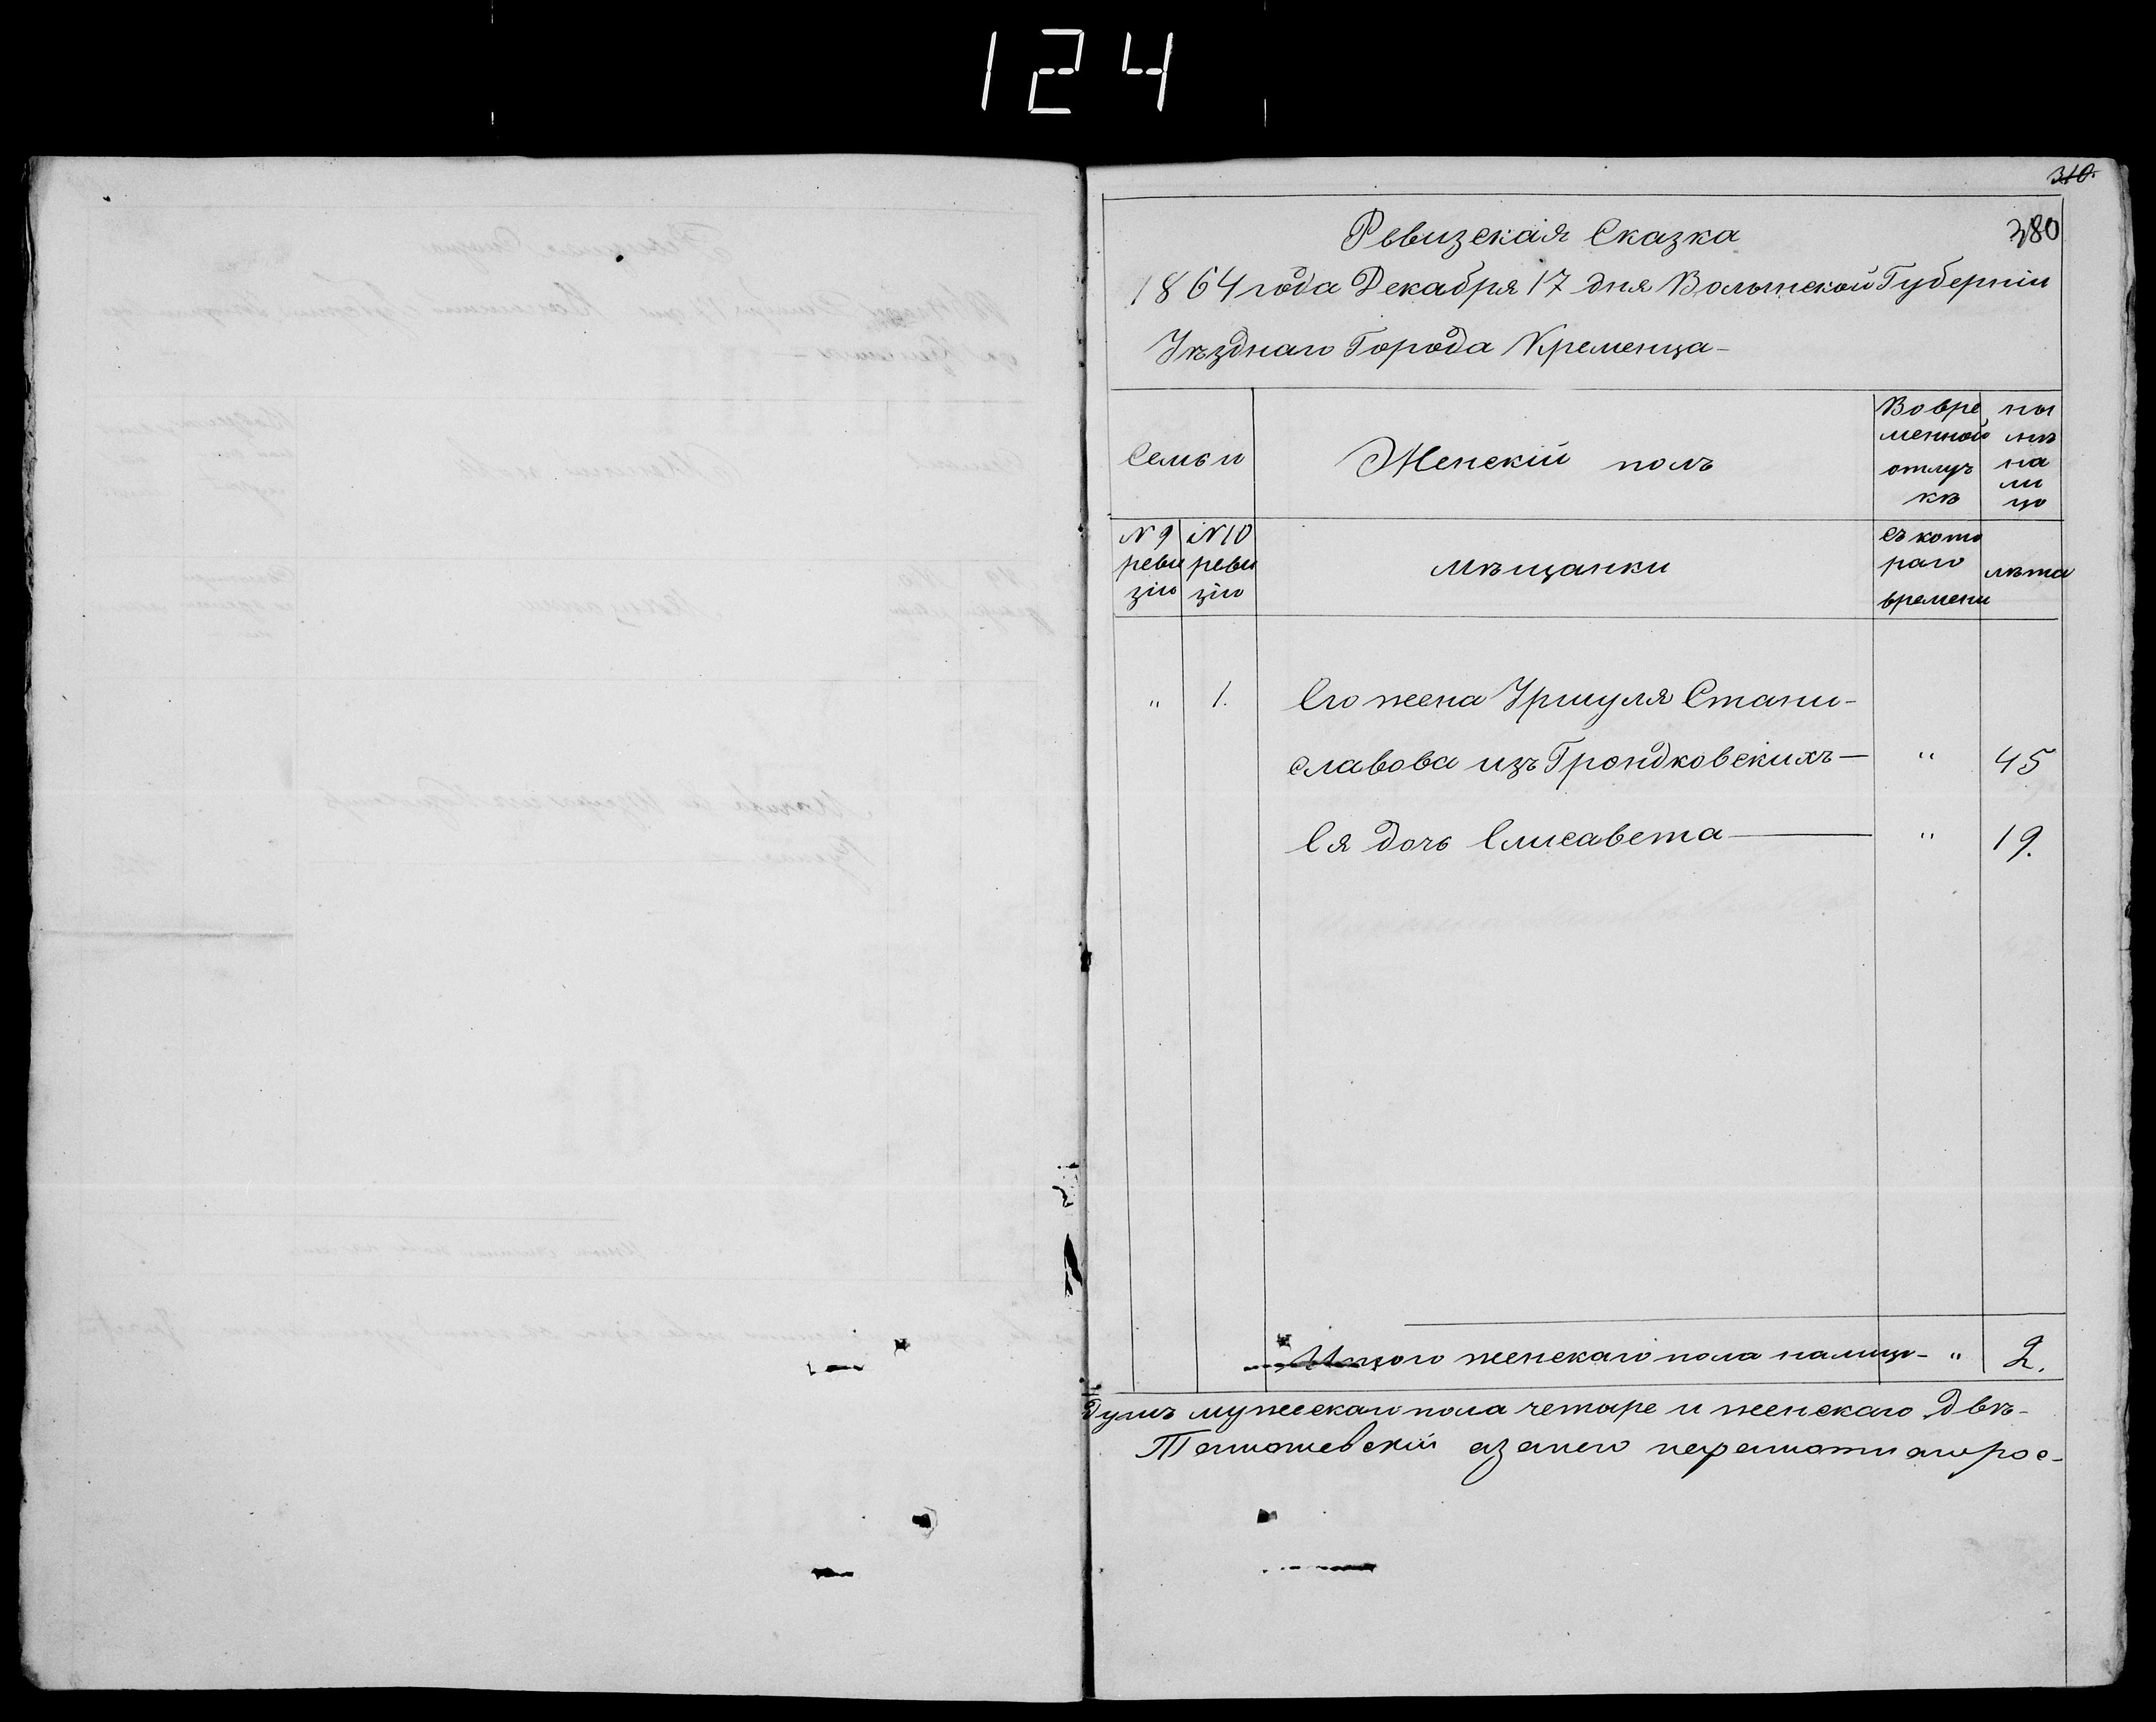 124
310.
380
Ревизская Сказка
1864 года Декабря 17 дня Волынской Губерніи
Уѣзднаго Города Кременца-
Семьи
Женскій полъ
Вовре
менной
отлуч
кѣ
ны
нѣ
на
ли
цо
N 9
реви
зіи
N 10
реви
зіи
мѣщанки
съ кото
раго
времени
лѣта
„ 1. Его жена Уршуля Стани-
славова изъ Грондковскихъ— „ 45
Ея дочь Елисавета— „ 19.
Итого женскаго пола налицо- „ 2.
Душъ мужескаго пола четыре и женскаго двѣ-